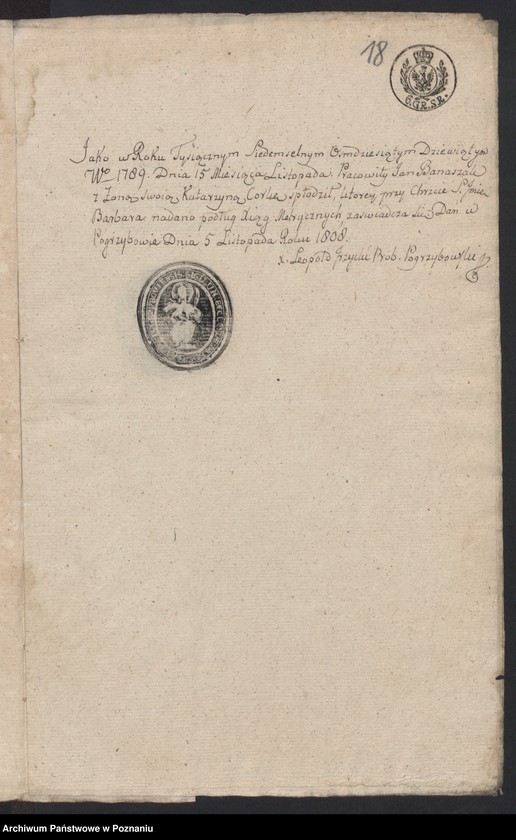 18
6.GR.SR.
Jako w Roku Tysiącznym Siedemsetnym Osmdziesiątym Dziewiątym
Wo 1789. Dnia 15 Miesiąca Listopada: Pracowity Jan Banaszak
z Żoną swoią Katarzyną Corkę spłodził, ktorey przy Chrzcie S. Jmie
Barbara nadano podług Xiąg Metrycznych zaswiadcza się. Dan w
Pogrzybowie Dnia 5 Listopada Roku 1808.
x. Leopold Prob. Pogrzybowski
Archiwum Państwowe w Poznaniu